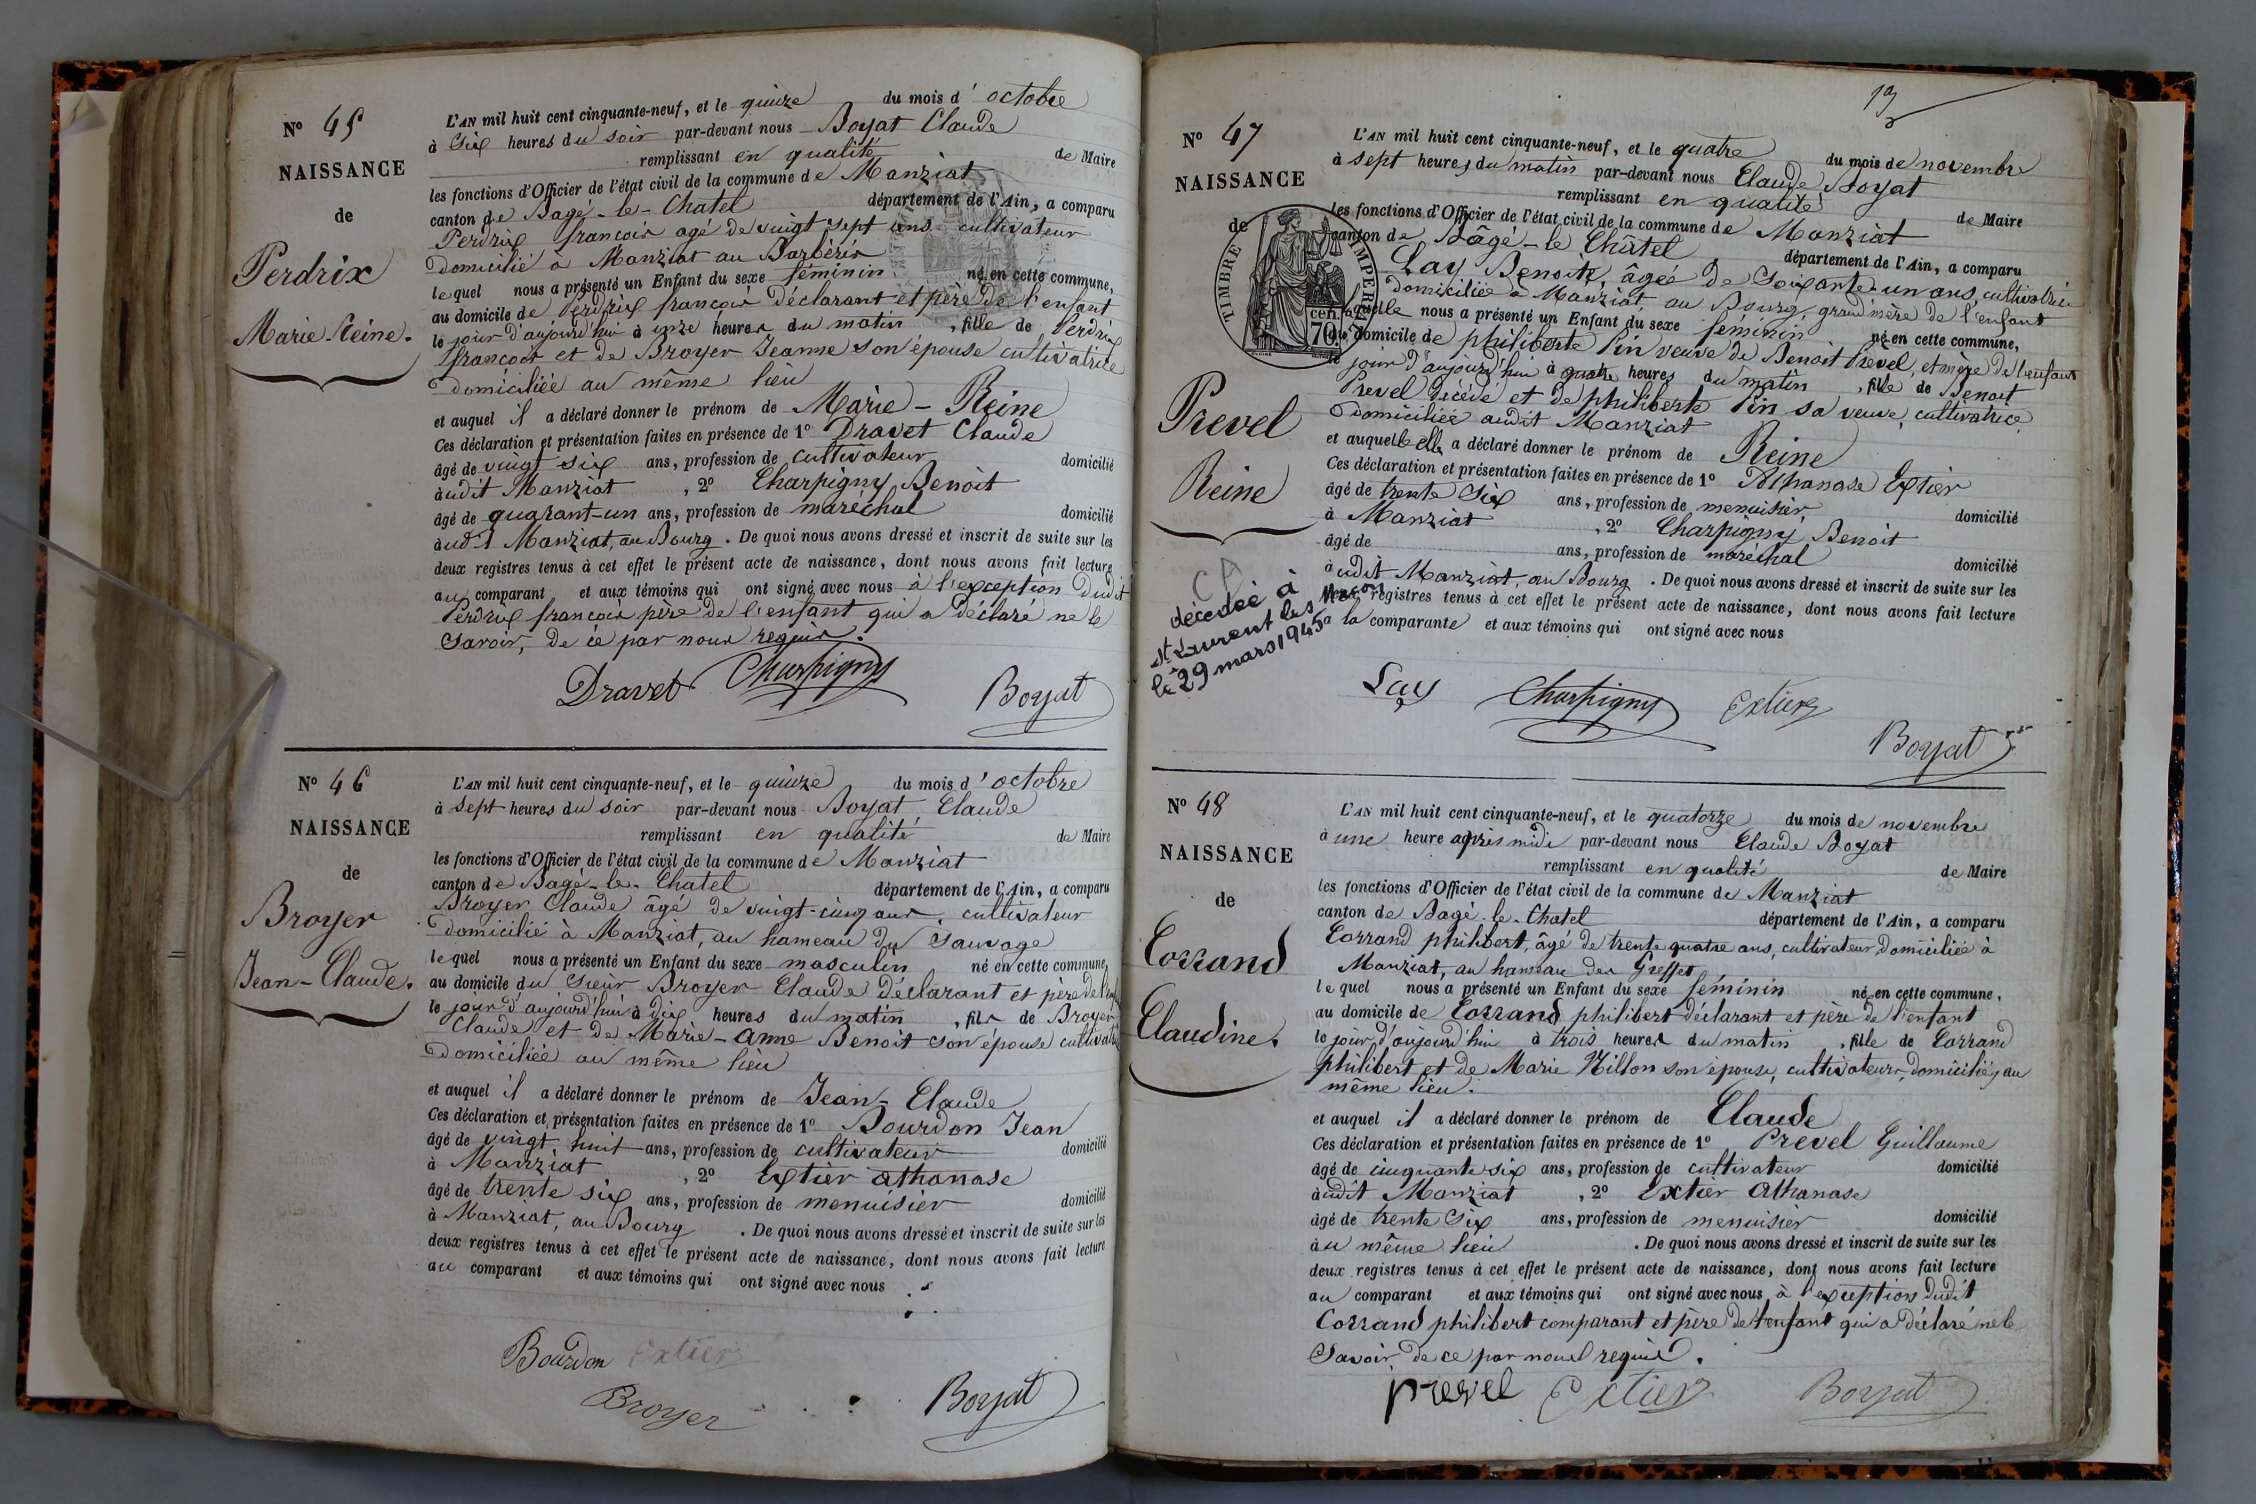 N° 45
NAISSANCE
de
Perdrix
Marie-Reine.
L'AN mil huit cent cinquante-neuf, et le quinze du mois d'octobre
à six heures du soir par-devant nous Boyat Claude
remplissant en qualité de Maire
les fonctions d'Officier de l'état civil de la commune de Manziat
canton de Bagé-le-Chatel département de l'Ain, a comparu
Perdrix francois agé de vingt sept ans cultivateur
domicilié à Manziat au Barbéris
lequel nous a présenté un Enfant du sexe féminin né en cette commune,
au domicile de Perdrix francois déclarant et père de l'enfant
le jour d'aujourd'hui à onze heures du matin, fille de Perdrix
francois et de Broyer Jeanne son épouse cultivatrice
domiciliée au même lieu
et auquel il a déclaré donner le prénom de Marie-Reine
Ces déclaration et présentation faites en présence de 1° Dravet Claude
âgé de vingt six ans, profession de cultivateur domicilié
audit Manziat, 2° Charpigny Benoit
âgé de quarant-un ans, profession de maréchal domicilié
audit Manziat, au Bourg. De quoi nous avons dressé et inscrit de suite sur les
deux registres tenus à cet effet le présent acte de naissance, dont nous avons fait lecture
au comparant et aux témoins qui ont signé avec nous à l'exception dudit
Perdrix francois père de l'enfant qui a déclaré ne le
savoir, de ce par nous requis.
Dravet Charpigny Boyat
N° 46
NAISSANCE
de
Broyer
Jean-Claude.
L'AN mil huit cent cinquante-neuf, et le quinze du mois d'octobre
à sept heures du soir par-devant nous Boyat Claude
remplissant en qualité de Maire
les fonctions d'Officier de l'état civil de la commune de Manziat
canton de Bagé-le-Chatel département de l'Ain, a comparu
Broyer Claude âgé de vingt-cinq ans, cultivateur
domicilié à Manziat, au hameau du Sauvage
lequel nous a présenté un Enfant du sexe masculin né en cette commune,
au domicile du sieur Broyer Claude déclarant et père de l'enfant
le jour d'aujourd'hui à dix heures du matin, fils de Broyer
Claude et de Marie-Anne Benoit son épouse cultivatrice
domiciliée au même lieu
et auquel il a déclaré donner le prénom de Jean-Claude
Ces déclaration et présentation faites en présence de 1° Bourdon Jean
âgé de vingt huit ans, profession de cultivateur domicilié
à Manziat, 2° Extier athanase
âgé de trente six ans, profession de menuisier domicilié
à Manziat, au Bourg. De quoi nous avons dressé et inscrit de suite sur les
deux registres tenus à cet effet le présent acte de naissance, dont nous avons fait lecture
au comparant et aux témoins qui ont signé avec nous
Bourdon Extier
Broyer Boyat
19
N° 47
NAISSANCE
de
TIMBRE IMPERIAL
70 cen.
Prevel
Reine
CA
décédée à
St Laurent les Macon
le 29 mars 1945
L'AN mil huit cent cinquante-neuf, et le quatre du mois de novembre
à sept heures du matin par-devant nous Claude Boyat
remplissant en qualité de Maire
les fonctions d'Officier de l'état civil de la commune de Manziat
canton de Bâgé-le Châtel département de l'Ain, a comparu
Lay Benoite, âgée de soixante-un ans, cultivatrice
domiciliée à Manziat au Bourg, grand'mère de l'enfant
laquelle nous a présenté un Enfant du sexe féminin né en cette commune,
au domicile de philiberte Pin veuve de Benoit Prevel, et mère de l'enfant
le jour d'aujourd'hui à quatre heures du matin, fille de Benoit
Prevel décédé et de philiberte Pin sa veuve, cultivatrice
domiciliée audit Manziat
et auquelle elle a déclaré donner le prénom de Reine
Ces déclaration et présentation faites en présence de 1° Athanase Extier
âgé de trente six ans, profession de menuisier domicilié
à Manziat, 2° Charpigny Benoit
âgé de ans, profession de maréchal domicilié
audit Manziat, au Bourg. De quoi nous avons dressé et inscrit de suite sur les
deux registres tenus à cet effet le présent acte de naissance, dont nous avons fait lecture
à la comparante et aux témoins qui ont signé avec nous
Lay Charpigny Extier
Boyat
N° 48
NAISSANCE
de
Corrand
Claudine.
L'AN mil huit cent cinquante-neuf, et le quatorze du mois de novembre
à une heure après midi par-devant nous Claude Boyat
remplissant en qualité de Maire
les fonctions d'Officier de l'état civil de la commune de Manziat
canton de Bagé-le-Chatel département de l'Ain, a comparu
Corrand philibert, âgé de trente quatre ans, cultivateur domiciliée à
Manziat, au hameau des Greffets
lequel nous a présenté un Enfant du sexe féminin né en cette commune,
au domicile de Corrand philibert déclarant et père de l'enfant
le jour d'aujourd'hui à trois heures du matin, fille de Corrand
philibert et de Marie Millon son épouse, cultivateurs, domiciliés au
même lieu.
et auquel il a déclaré donner le prénom de Claude
Ces déclaration et présentation faites en présence de 1° Prevel Guillaume
âgé de cinquante six ans, profession de cultivateur domicilié
audit Manziat, 2° Extier Athanase
âgé de trente six ans, profession de menuisier domicilié
au même lieu. De quoi nous avons dressé et inscrit de suite sur les
deux registres tenus à cet effet le présent acte de naissance, dont nous avons fait lecture
au comparant et aux témoins qui ont signé avec nous, à l'exception dudit
Corrand philibert comparant et père de l'enfant qui a déclaré ne le
savoir de ce par nous requis.
prevel Extier Boyat